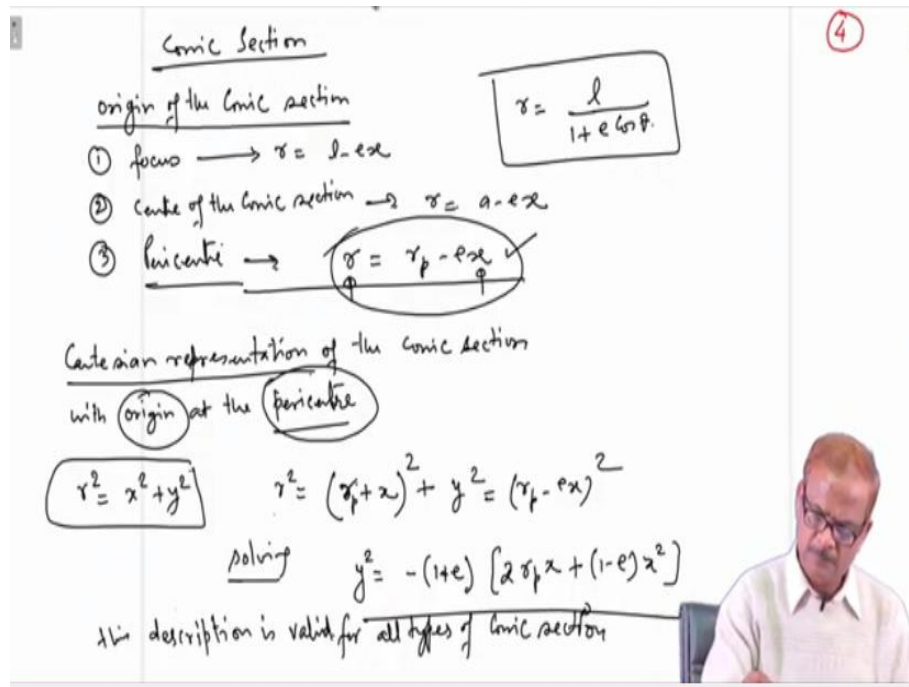 4
Conic Section
origin of the Conic section
r = l / 1 + e Cos θ.
① focus → r = l - ex
② centre of the Conic section → r = a - ex
③ Pericentre → r = r_p - ex ✓
Cartesian representation of the conic section
with origin at the pericentre
r² = x² + y²   r² = (r_p + x)² + y² = (r_p - ex)²
solving   y² = -(1+e) [2 r_p x + (1-e) x²]
this description is valid for all types of Conic section